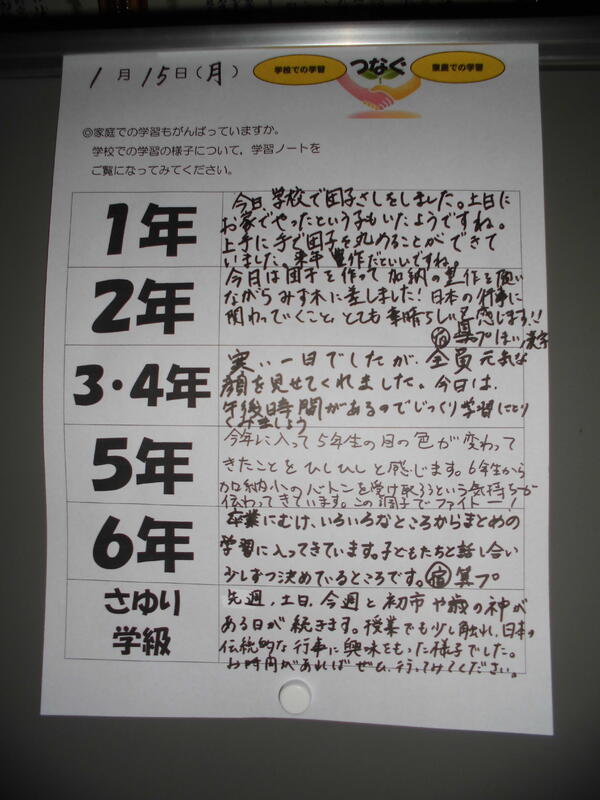 1月15日(月)
学校での学習 つなぐ 家庭での学習
◎家庭での学習もがんばっていますか。
学校での学習の様子について,学習ノートを
ご覧になってみてください。
1年
今日学校で団子さしをしました。土日に
お家でやったという子もいたようですね。
上手に手で団子を丸めることができて
いました。来年豊作だといいですね。
2年
今日は団子を作って加納の豊作を願い
ながらみず木に差しました!日本の行事に
関わっていくこと、とても素晴らしいと感じます!!
宿 算プ はい 漢字
3・4年
寒い一日でしたが、全員元気な
顔を見せてくれました。今日は、
午後時間があるのでじっくり学習にとり
くみましょう
5年
今年に入って5年生の目の色が変わって
きたことをひしひしと感じます。6年生から
加納小のバトンを受け取ろうという気持ちが
伝わってきています。この調子でファイトー!
6年
卒業にむけ、いろいろなところからまとめの
学習に入ってきています。子どもたちと話し合い
少しずつ決めているところです。宿 算プ
さゆり
学級
先週,土日,今週と初市や歳の神が
ある日が続きます。授業でも少し触れ,日本の
伝統的な行事に興味をもった様子でした。
お時間があればぜひ,行ってみてください。